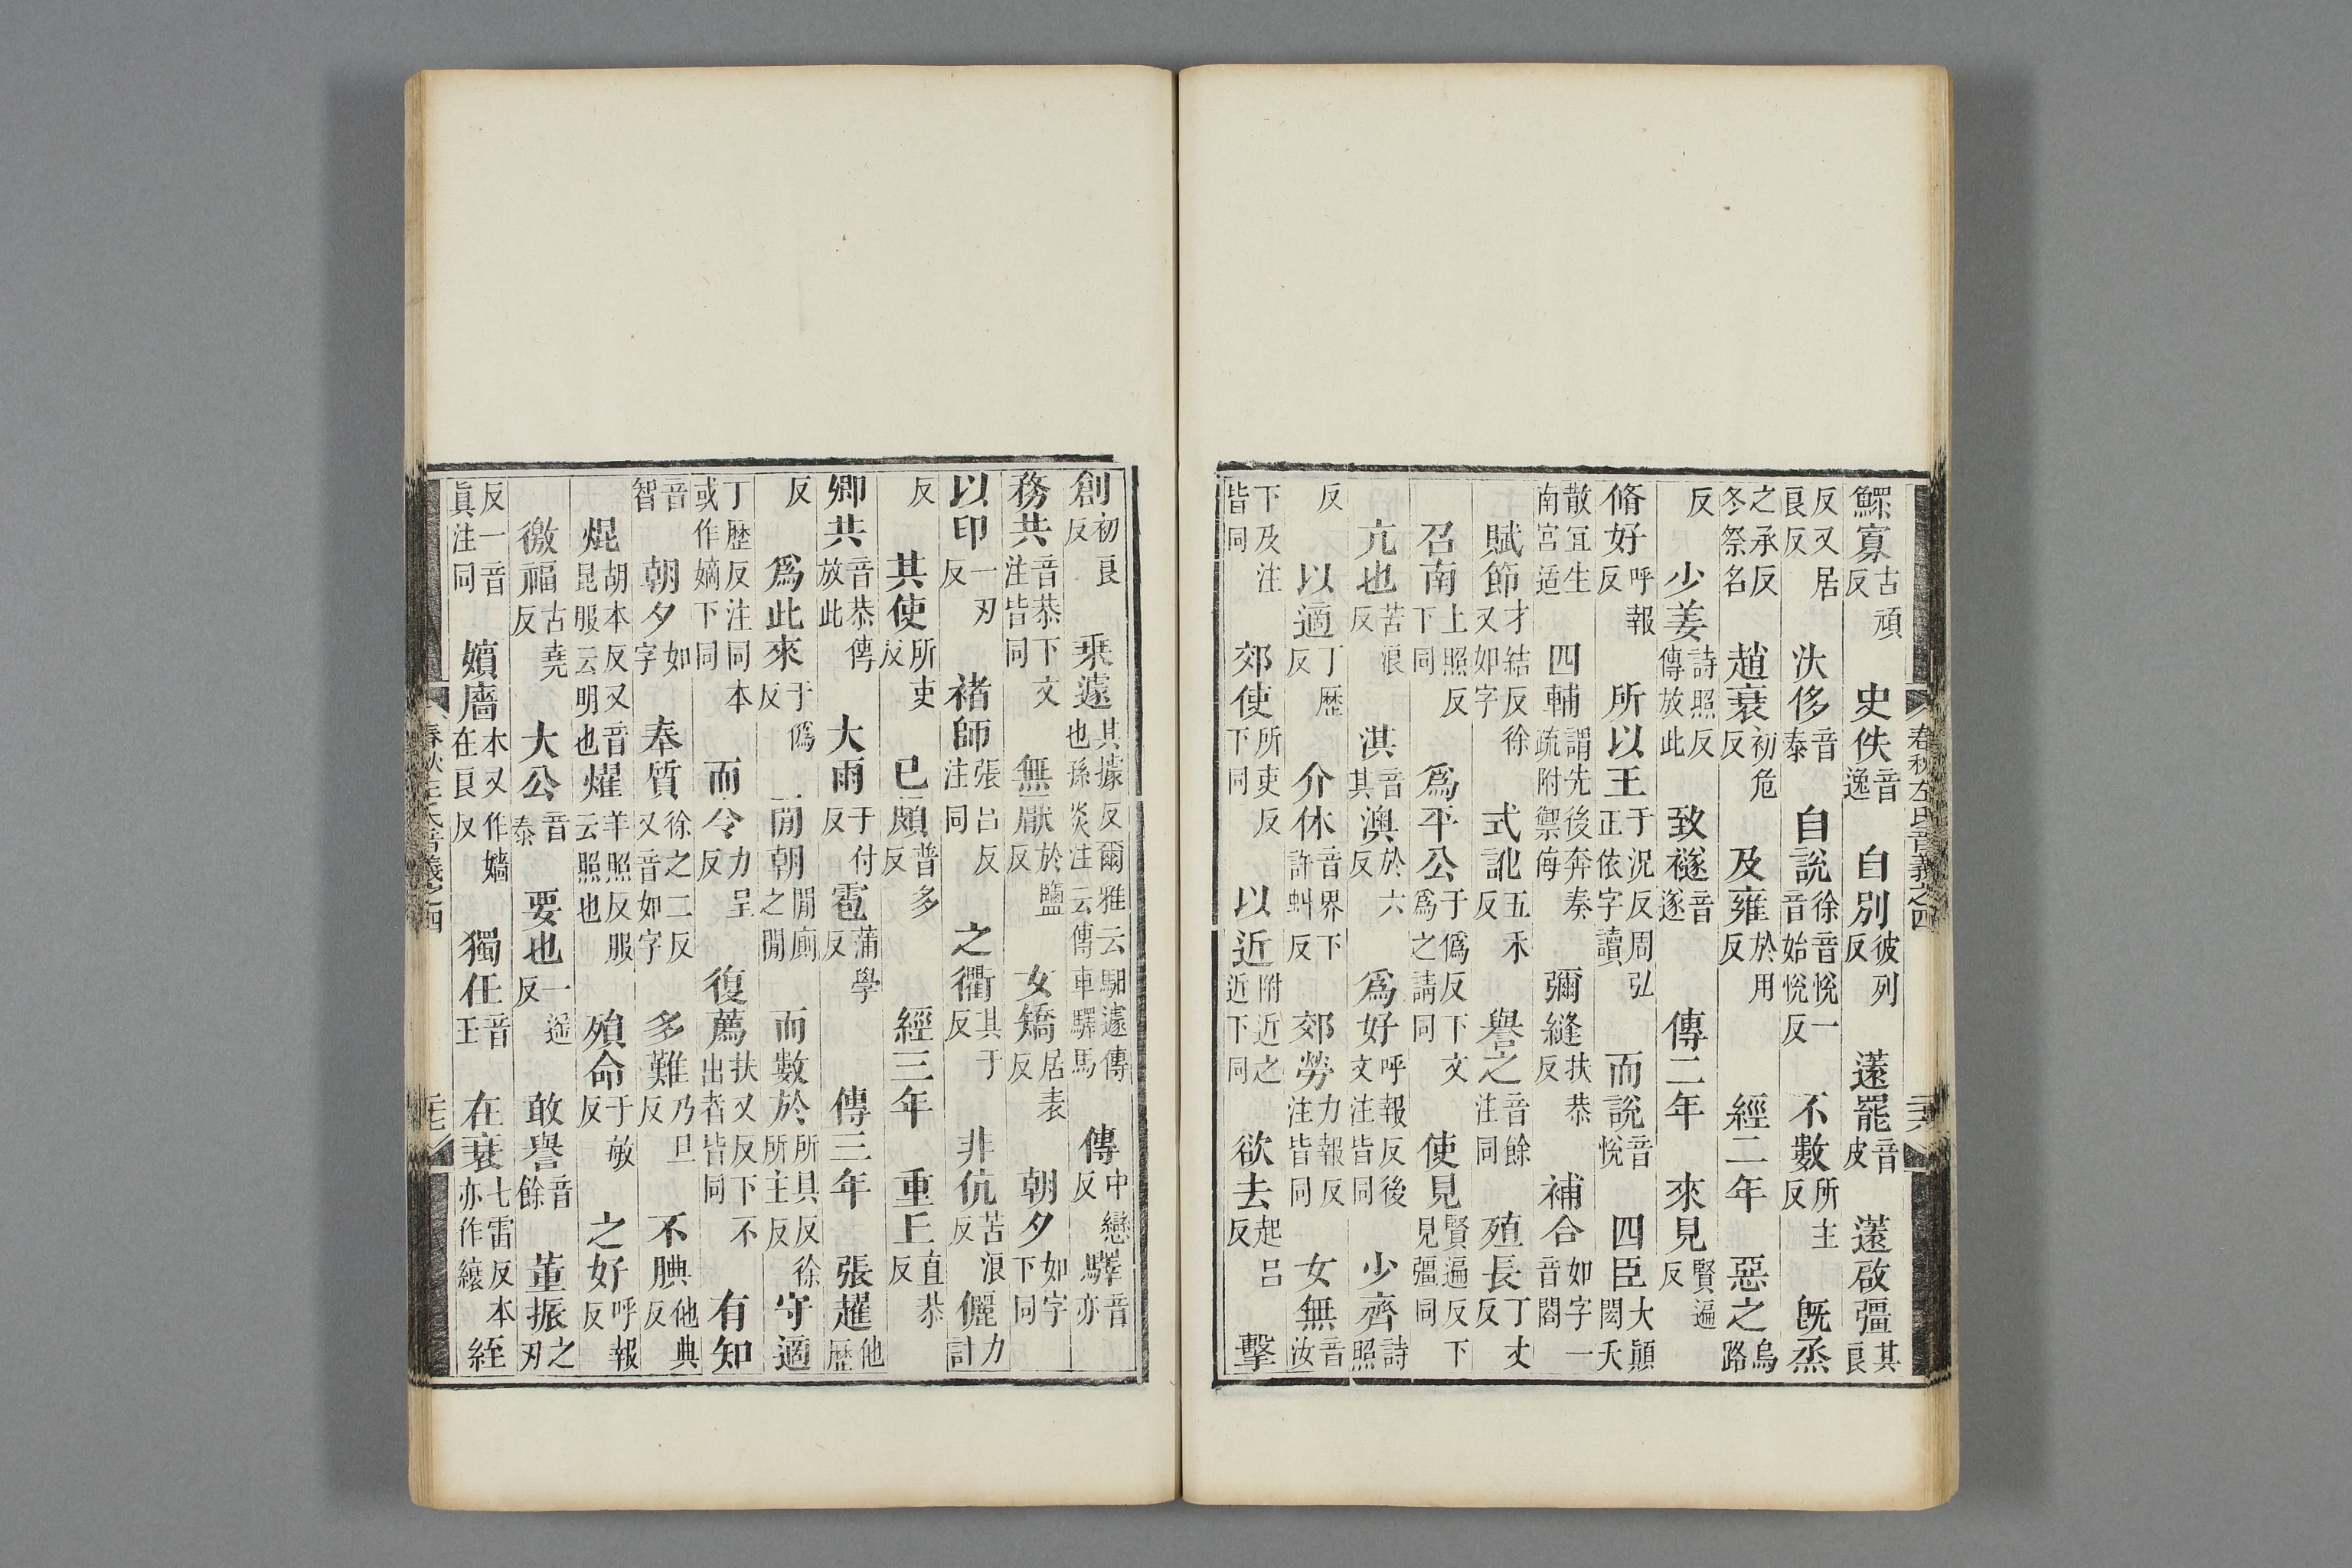 春秋左氏音義之四
鰥寡古頑反 史佚音逸 自別彼列反 薳罷音皮 薳啟彊其良
反又居良反 汏侈音泰 自說徐音悅一音始悅反 不數所主反 旣烝
之承反冬祭名 趙衰初危反 及雍於用反 經二年 惡之烏路
反 少姜詩照反傳放此 致襚音遂 傳二年 來見賢遍反
脩好呼報反 所以王于況反周弘正依字讀 而說音悅 四臣大顚閎夭
散宜生南宮适 四輔謂先後奔奏疏附禦侮 彌縫扶恭反 補合如字一音閤
賦節才結反徐又如字 式訛五禾反 譽之音餘注同 殖長丁丈反
召南上照反下同 爲平公于僞反下文爲之請同 使見賢遍反下見彊同
亢也苦浪反 淇音其澳於六反 爲好呼報反後文注皆同 少齊詩照
反 以適丁歷反 介休音界下許虯反 郊勞力報反注皆同 女無音汝
下及注皆同 郊使所吏反下同 以近附近之近下同 欲去起呂反 擊
創初良反 乘遽其據反爾雅云馹遽傳也孫炎注云傳車驛馬 傳中戀反驛音亦
務共音恭下文注皆同 無厭於鹽反 女矯居表反 朝夕如字下同
以印一刃反 褚師張呂反注同 之衢其于反 非伉苦浪反 儷力計
反 其使所吏反 已頗普多反 經三年 重上直恭反
卿共音恭傳放此 大雨于付反雹蒲學反 傳三年 張趯他歷
反 爲此來于僞反 閒朝閒廁之閒 而數於所具反徐所主反 守適
丁歷反注同本或作嫡下同 而令力呈反 復薦扶又反下不出者皆同 有知
音智 朝夕如字 奉質徐之二反又音如字 多難乃旦反 不腆他典反
焜胡本反又音昆服云明也燿羊照反服云照也 殞命于敏反 之好呼報反
徼福古堯反 大公音泰 要也一遥反 敢譽音餘 董振之刃
反一音眞注同 嬪廧本又作嬙在良反 獨任音壬 在衰七雷反本亦作縗 絰
春秋左氏音義之四